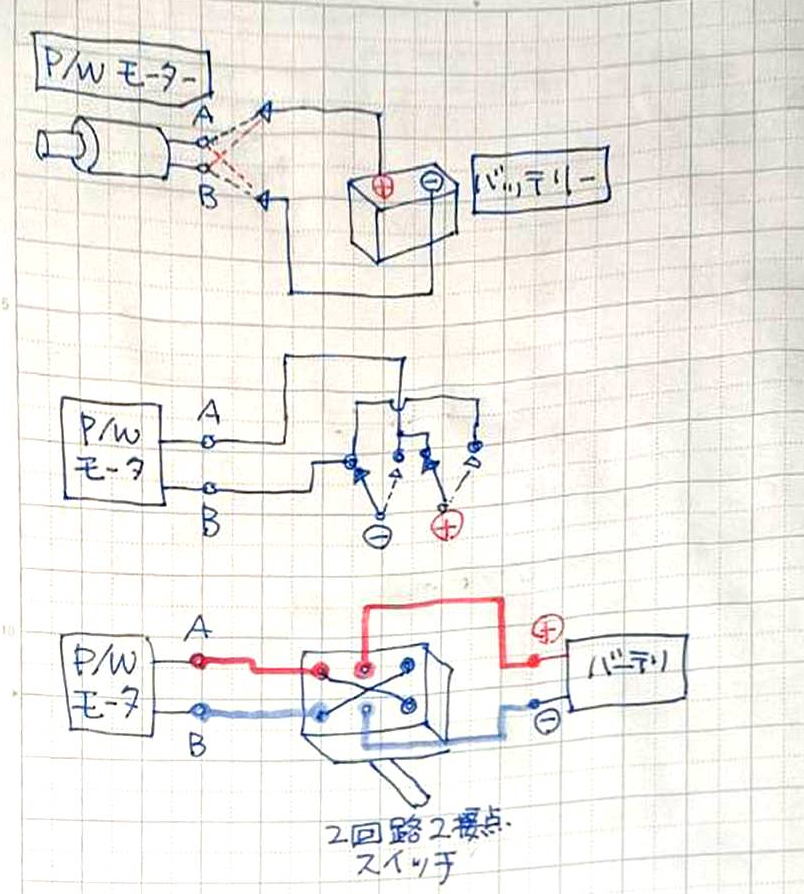 P/W モーター
A
B
⊕
⊖
バッテリー
5
P/W
モータ
A
B
⊖
⊕
10
P/W
モータ
A
B
⊕
⊖
バーテリ
2回路2接点
スイッチ